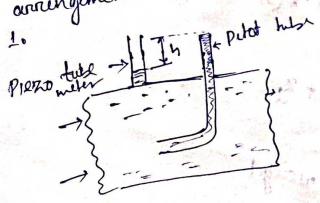 arrangeme
1.
h
pitot tube
Piezo tube
meter